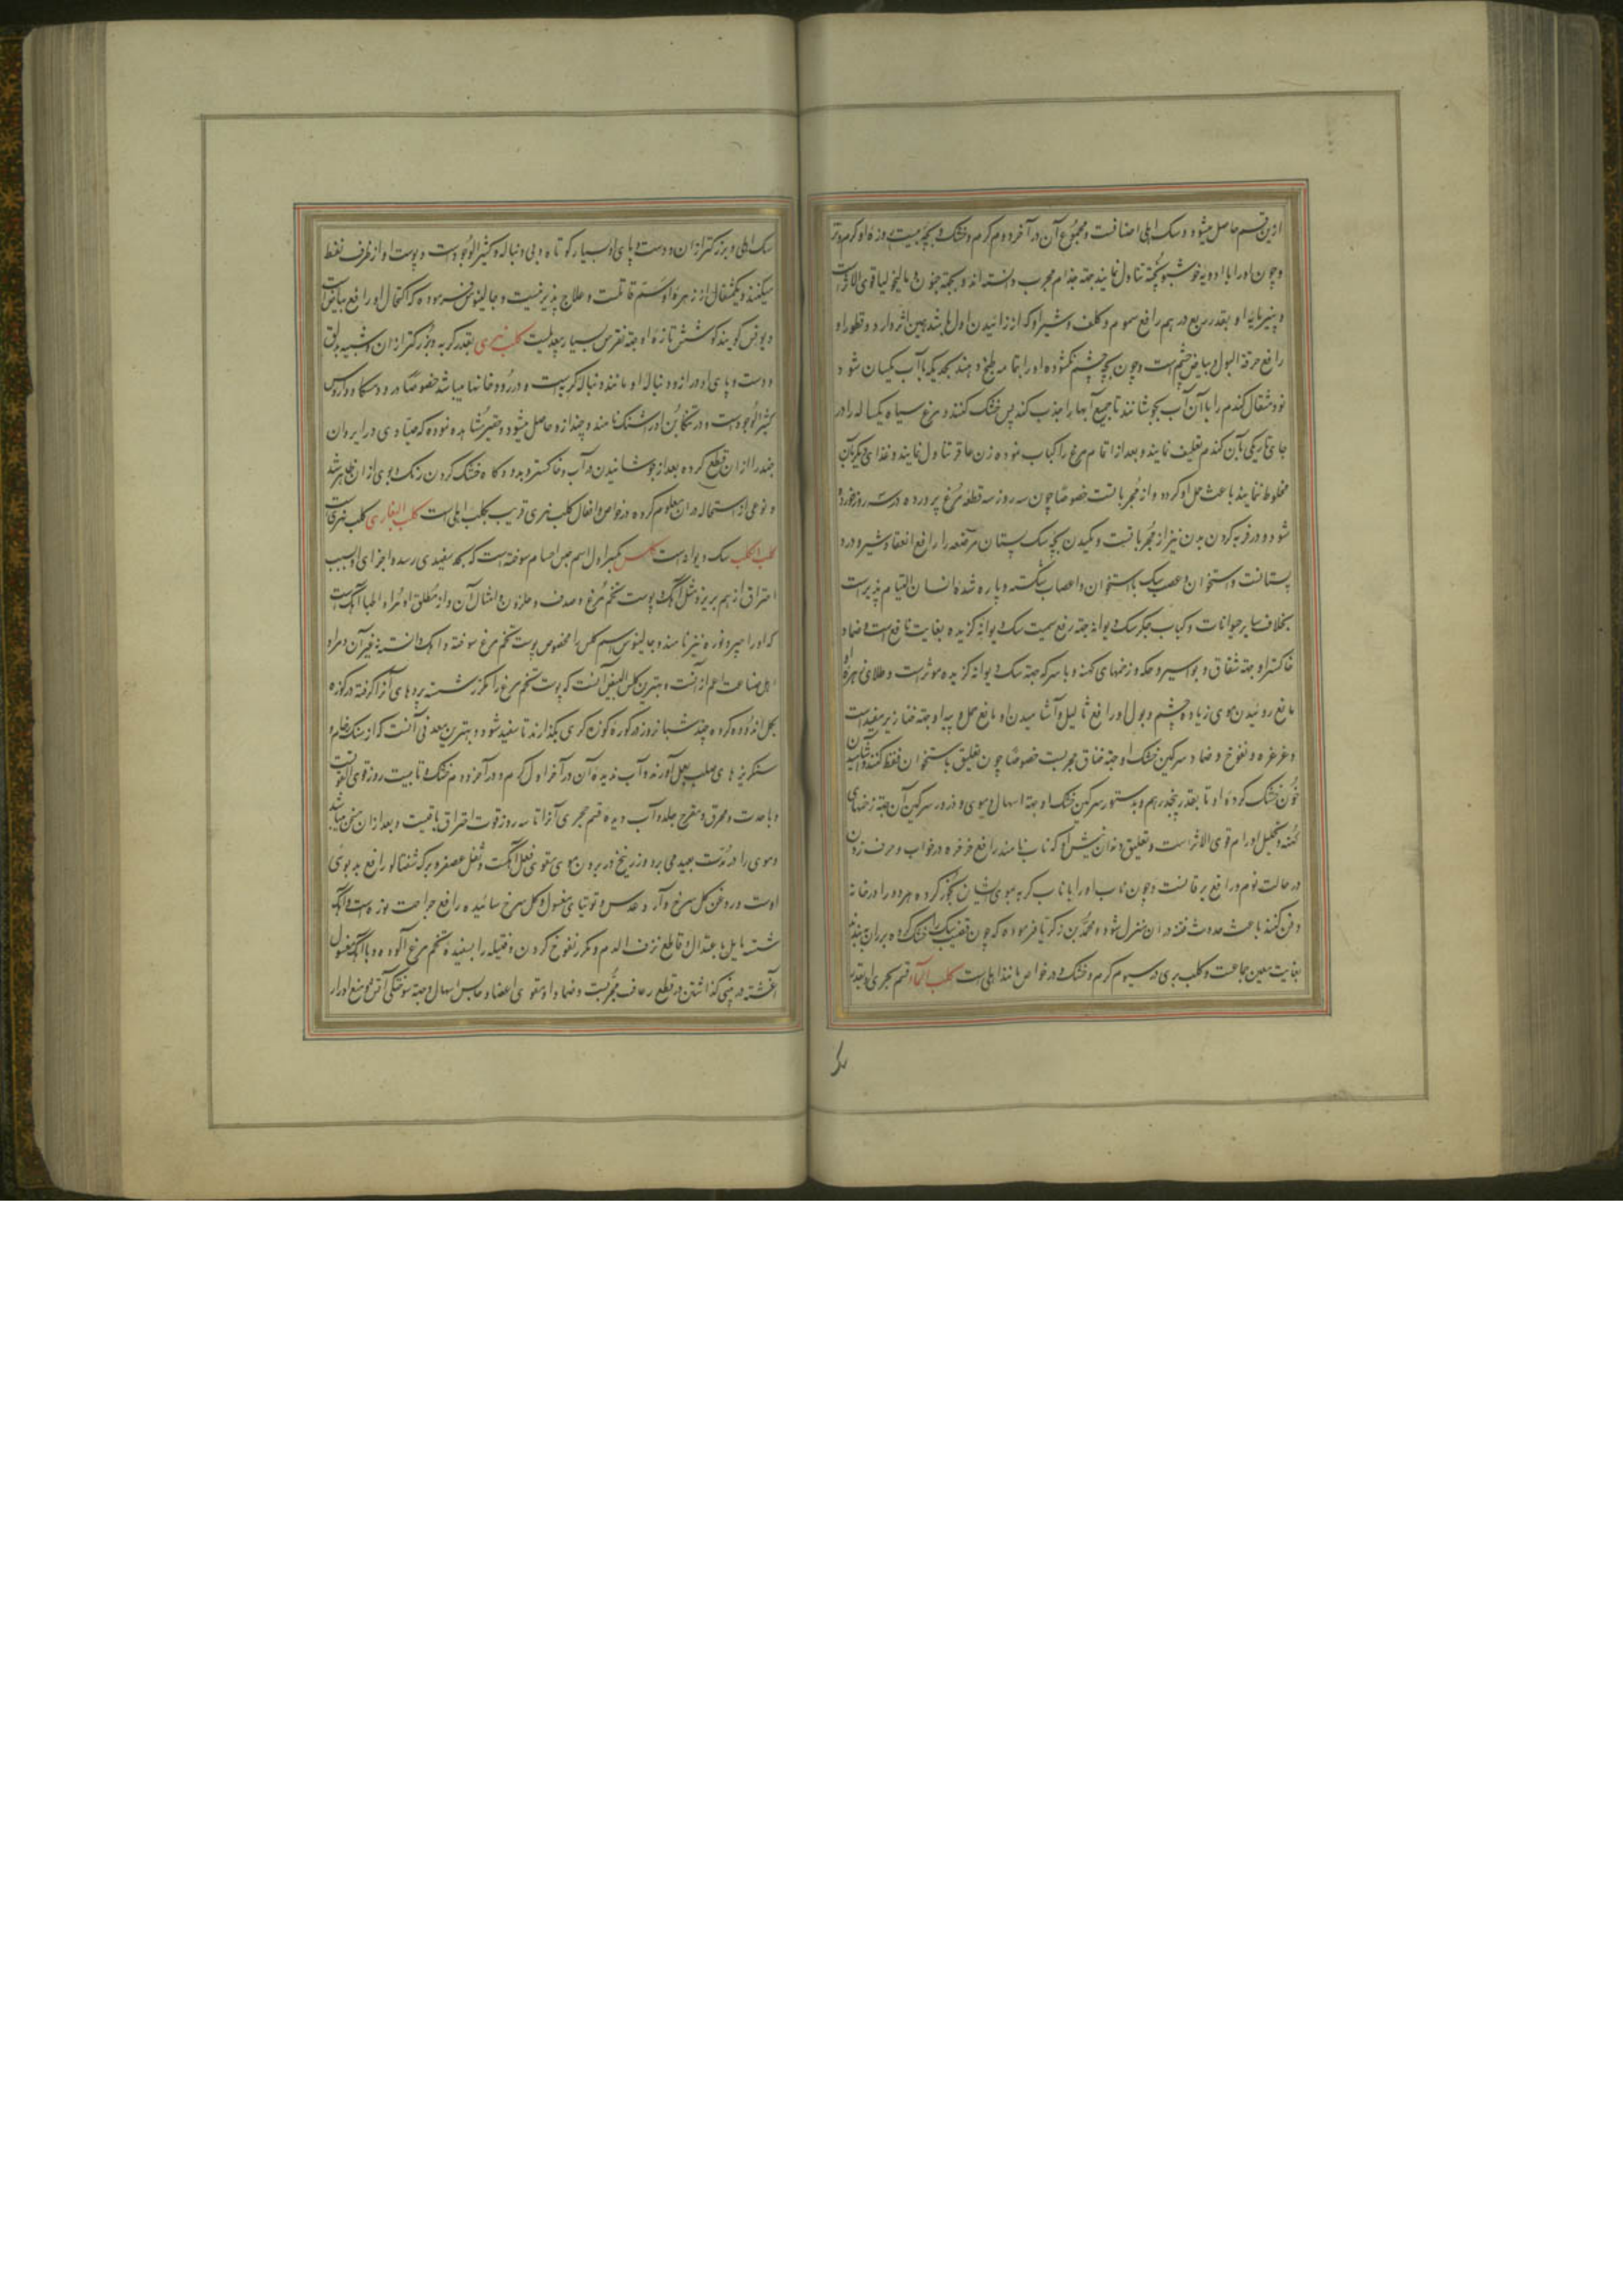 ازین قسم حاصل میشود و سک اهلی اصنافست و مجموع آن در آخر دوم کرم و خشک و بچه بیست روزهٔ او کرم و تر
و چون او را با ادویه خوشبو پخته تناول نمایند جهة جذام مجرب دانسته اند و بجهة جنون و مالیخولیا قوی الاثر است
و پنیر مایه او بقدر ربع درهم رافع سموم و کلف و شیر او که از زائیدن اول باشد همین اثر دارد و قطور او
رافع حرقة البول و بیاض چشم است و چون بچه چشم نکشوده او را بتمامه طبخ دهند بحدیکه با آب یکسان شود و
نود مثقال کندم را با آن آب بجوشانند تا جمیع آبها را جذب کند پس خشک کنند و مرغ سیاه یکساله را در
جای تاریکی بآن کندم تعلیف نمایند و بعد از اتمام مرغ را کباب نموده زن عاقر تناول نمایند و غذای دیگر بآن
مخلوط ننمایند باعث حمل او کردد و از مجرباتست خصوصا چون سه روز سه قطعه مرغ پرورده در سه روز خورده
شود و در فربه کردن بدن نیز از مجرباتست و مکیدن بچه سک پستان مرضعه را رافع انعقاد شیر و درد
پستانست و استخوان و عصب سک با استخوان و اعصاب شکسته و پاره شدهٔ انسان التیام پذیر است
بخلاف سایر حیوانات و کباب جکر سک دیوانه جهة رفع سمیت سک دیوانه کزیده بغایت نافع است و ضماد
خاکستر او جهة شقاق و بواسیر و حکه و زخمهای کهنه و با سرکه جهة سک دیوانه کزیده موثر است و طلای زهرهٔ او
مانع روئیدن موی زیاده چشم و بول او رافع ثالیل و آشامیدن او مانع حمل و پیه او جهة خنازیر مفید است
و غرغره و نفوخ و ضماد سرکین خشک او جهة خناق مجربست خصوصا چون تعلیق باستخوان فقط کنند و آشامیدن
خون خشک کردهٔ او تا بقدر پنجدرهم و بدستور سرکین خشک او جهة اسهال دموی و ذرور سرکین آن جهة زخمهای
کهنه و تحلیل اورام قوی الاثر است و تعلیق دندان نیش او که ناب نامند رافع خرخره در خواب و حرف زدن
در حالت نوم و رافع یرقانست و چون ناب او را با ناب کربه بموی ایشان بخور کرده هر دو را در خانه
دفن کنند باعث حدوث فتنه در آن منزل شود و محمد بن زکریا فرموده که چون قضیب سک را خشک کرده بر ران بندند
بغایت معین جماعست و کلب بری در سیوم کرم و خشک و در خواص مانند اهلی است کلب الماء قسم بحری او بقدر
سک اهلی و بزرکتر از آن و دست و پای او بسیار کوتاه و بی دنباله و کثیر الوجود است و پوست او از ظرف نفط
میکنند و یکمثقال از زهرهٔ او سم قاتلست و علاج پذیر نیست و جالینوس فرموده که اکتحال او رافع بیاض است
و یونس کویند کوشش تازهٔ او جهة نقرس بسیار بیعدیلست کلب نهری بقدر کربه و بزرکتر از آن و شبیه بدلق
و دست و پای او دراز و دنباله او مانند دنباله کربه است و در رودخانها میباشد خصوصا در رود تنکا و در روس
کثیر الوجود است و در تنکابن او را شنک نامند و جند از او حاصل میشود و حقیر مشاهده نموده که صیادی در ایروان
جند را از آن قطع کرده بعد از جوشانیدن در آب و خاکستر و بدود کاه خشک کردن رنک و بوی از آن ظاهر شد
و نوعی از استحاله در آن معلوم کرده و در خواص و افعال کلب نهری قریب بکلب اهلی است کلب الغاری کلب بحری است
کلب الکلب سک دیوانه است کلس بکسر اول اسم جمیع اجسام سوخته است که بحد سفیدی رسد و اجزای او بسبب
احتراق از هم بریزد مثل آهک و پوست تخم مرغ و صدف و حلزون و امثال آن و از مطلق او مراد اطبا آهک است
که او را جیر و نوره نیز نامند و جالینوس اسم کلس را مخصوص پوست تخم مرغ سوخته و آهک دانسته نه غیر آن و مراد
اهل صناعت اعم از آنست و بهترین کلس البیض آنست که پوست تخم مرغ را مکرر شسته پردهای آنرا کرفته در کوزه
بکل اندوده کرده چند شبانروز در کورهٔ کوزه کری بکذارند تا سفید شود و بهترین معدنی آنست که از سنک خام و
سنکریزهای صلب بعمل آورند و آب ندیدهٔ آن در آخر اول کرم و در آخر دوم خشک و تا بیست روز قوی القوتست
و با حدت و محرق و مقرح جلد و آب دیدهٔ قسم حجری آنرا تا سه روز قوت احراق باقیست و بعد از آن مسخن میباشد
و موی را در مدت بعید می برد و زرنیخ در بردن موی مقوی فعل آهکست و ثفل عصفر و برک شفتالو رافع بدبوئی
اوست و روغن کل سرخ و آرد عدس و توتیای مغسول و کل سرخ سائیده رافع جراحت نوره است و آهک
شسته مایل باعتدال و قاطع نزف الدم و مکرر نفوخ کردن و فتیله را بسفیده تخم مرغ آلوده و با آهک مغسول
آغشته در بینی کذاشتن در قطع رعاف مجربست و ضماد او مقوی اعضا و حابس اسهال و جهة سوختکی آتش و منع ادرار